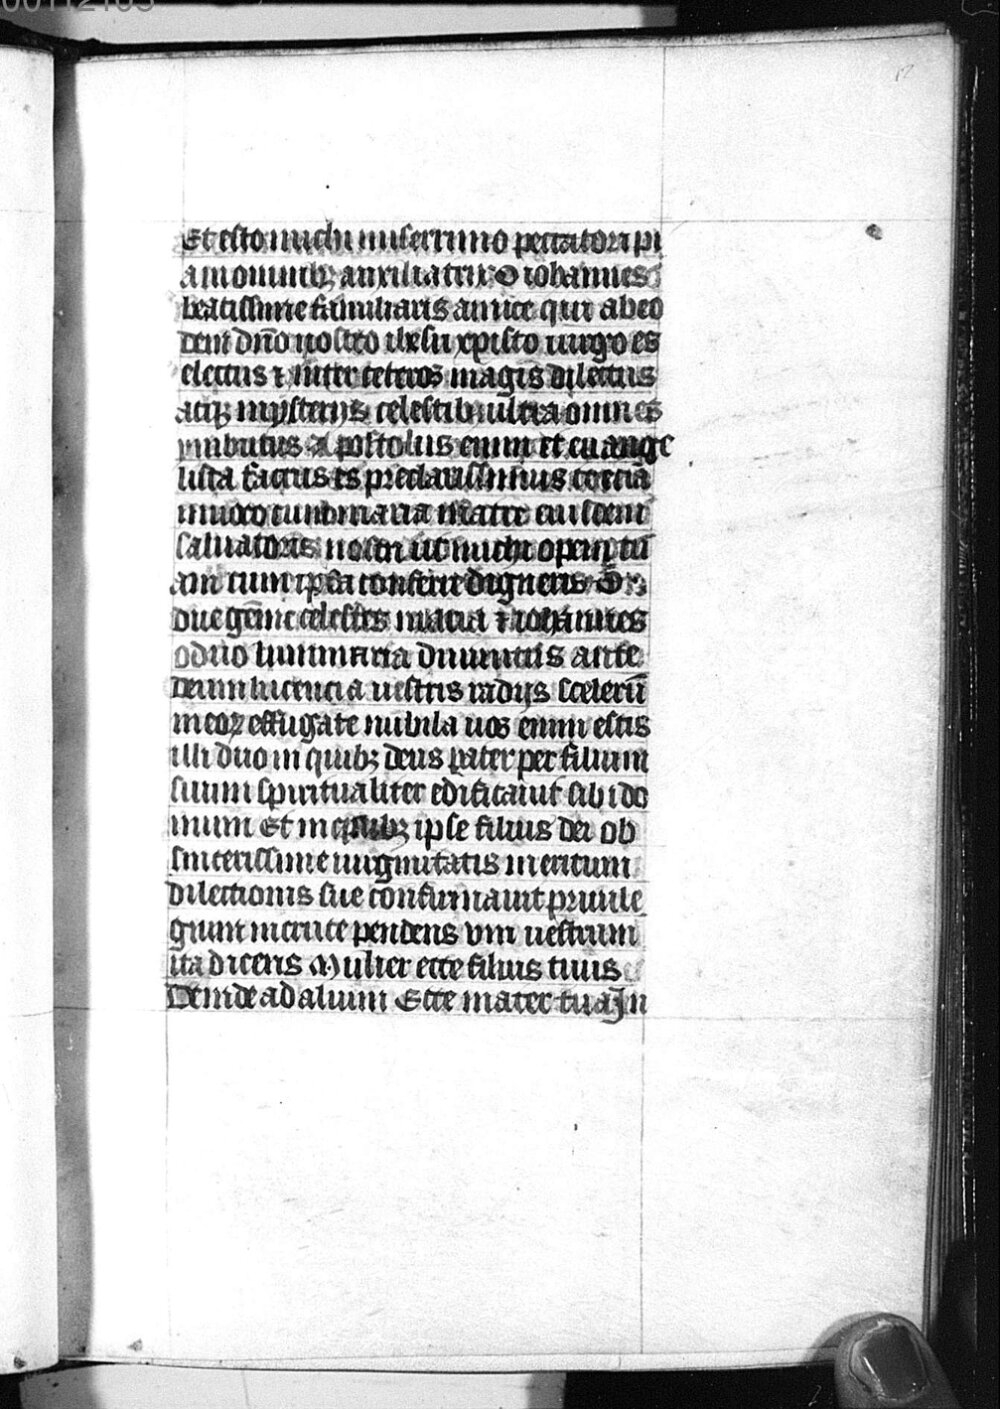 00112103
12
Et esto michi miserrimo peccatori pi
a in omnibꝫ auxiliatrix O iohannes
beatissime familiaris amice qui ab eo
dem dn̄o nostro ihesu xpisto uirgo es
electus ⁊ inter ceteros magis dilectus
atqꝫ mysterijs celestibꝫ ultra omnes
ymbutus Apostolus enim et euange
lista factus es preclarissimus te etiā
inuoco cum maria matre eiusdem
saluatoris nostri ut michi opem tu
am cum ipsa conferre digneris O
due gēme celestes maria ⁊ iohannes
o duo luminaria diuinitus ante
deum lucencia uestris radijs scelerū
meoꝝ effugate nubila uos enim estis
illi duo in quibꝫ deus pater per filium
suum spiritualiter edificauit sibi do
mum Et in quibꝫ ipse filius dei ob
sincerissime uirginitatis meritum
dilectionis sue confirmauit priuile
gium in cruce pendens vni uestrum
ita dicens Mulier ecce filius tuus
Deinde ad alium Ecce mater tua Jn